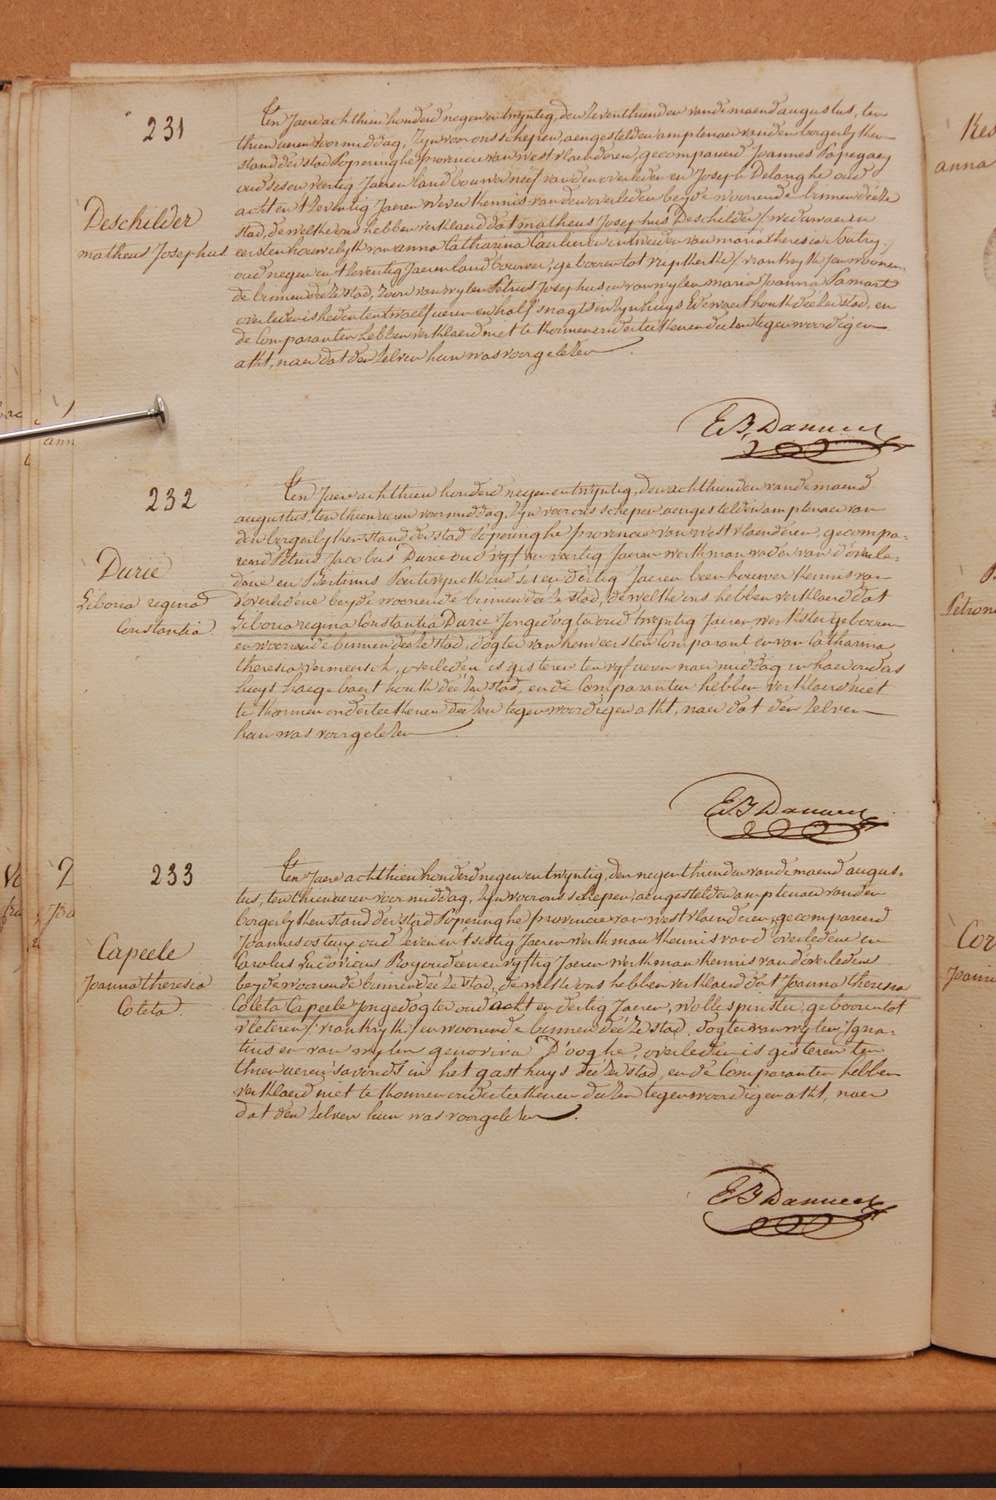 231
Deschilder
matheus Josephus
Ten Jaere achthien honderd negen en twyntig, den seventhienden van de maend augustus, ten
thien ueren voormiddag, Zyn voor ons schepen, aengestelden amptenaer van den borgerlythen
stand der stad Poperinghe provincie van west vlaenderen, gecompareerd Joannes Papegaey
oud ses en veertig Jaeren landbouwer neef van den overleden en Joseph Delanghe oud
acht en tseventig Jaeren wever kennis van den overleden beyde woonende binnen deéze
stad, de welke ons hebben verklaerd dat matheus Josephus Deschilder / weduwaer in
eersten houwelyk van anna Catharina Caulier en in tweeden van maria theresia
oud negen en tseventig Jaeren landbouwer, geboren tot / vrankryk / en woonen-
de binnen deéze stad, zoon van wylen Petrus Josephus en van wylen maria Joanna Samart
overleden is heden ten twaelf ueren en half snagts in zyn huys deézer stad, en
de Comparanten hebben verklaerd niet te konnen onderteekenen deézen tegenwoordigen
akt, naer dat den zelven hun was voorgelezen
E.B. Danneel
232
Durie
Liboria regina
Constantia
Ten Jaere achthien honderd negen en twyntig, den achthienden van de maend
augustus, ten thien ueren voormiddag, Zyn voor ons schepen aengestelden amptenaer van
den borgerlythen stand der stad Poperinghe provincie van west vlaenderen, gecompa-
reerd Petrus Jacobus Durie oud vyf en veertig Jaeren werkman vader van d'overle-
dene en Bertinus oud ses en dertig Jaeren kennis van
d'overledene beyde woonende binnen deéze stad, de welke ons hebben verklaerd dat
Liboria regina Constantia Durie Jongedogter oud twyntig Jaeren, geboren
en woonende binnen deéze stad, dogter van hem eersten Comparant en van Catharina
theresia vermersch, overleden is gisteren ten vyf ueren naermiddag in haer ouders
huys deézer stad, en de Comparanten hebben verklaerd niet
te konnen onderteekenen deézen tegenwoordigen akt, naer dat den zelven
hun was voorgelezen
E.B Danneel
233
Capeele
Joanna theresia
Coleta
Ten Jaere achthien honderd negen en twyntig, den negenthienden van de maend augus-
tus, ten thien ueren voormiddag, Zyn voor ons schepen, aengestelden amptenaer van den
borgerlythen stand der stad Poperinghe provincie van west vlaenderen, gecompareerd
Joannes ostuy oud seven en tsestig Jaeren werkman kennis van d'overledene en
Carolus Ludovicus Roy oud een en vyftig Jaeren werkman kennis van d'overledene
beyde woonende binnen deéze stad, de welke ons hebben verklaerd dat Joanna theresia
Coleta Capeele Jongedogter oud acht en dertig Jaeren, wollespinster, geboren tot
vleteren / vrankryk / en woonende binnen deéze stad, dogter van wylen Igna-
tius en van wylen genoviva D'ooghe, overleden is gisteren ten
thien ueren s'avonds in het gasthuys deézer stad, en de Comparanten hebben
verklaerd niet te konnen onderteekenen deézen tegenwoordigen akt, naer
dat den zelven hun was voorgelezen
E.B Danneel
anna